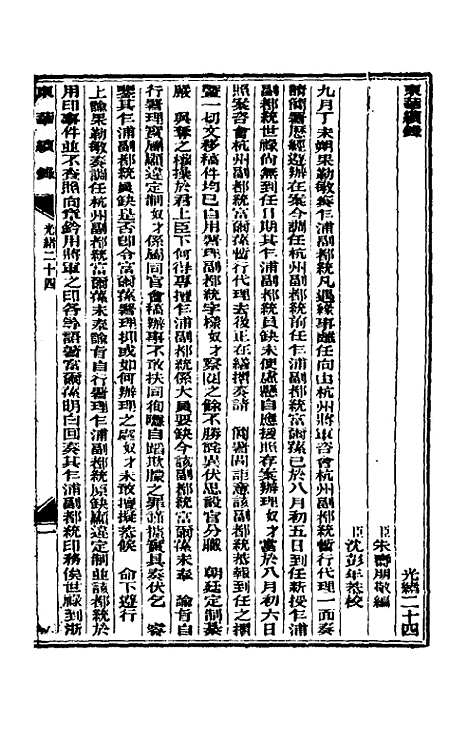 東華續錄
光緒二十四
臣朱壽朋敬編
臣沈彭年恭校
九月丁未朔果勒敏奏乍浦副都統凡遇緣事離任向由杭州將軍咨會杭州副都統暫行代理一面奏
請簡署歷經遵辦在案今調任杭州副都統前任乍浦副都統富爾蓀已於八月初五日到任新授乍浦
副都統世祿尚無到任日期其乍浦副都統員缺未便虛懸自應援照存案辦理奴才當於八月初六日
照案咨會杭州副都統富爾蓀暫行代理去後正在繕摺奏請 簡署間詎意該副都統恭報到任之摺
暨一切文移稿件均已自用署理副都統字樣奴才察閱之餘不勝詫異伏思設官分職 朝廷定制綦
嚴 與奪之權操於君上臣下何得專擅乍浦副都統係大員要缺今該副都統富爾蓀未奉 諭旨自
行署理實屬顯違定制奴才係屬同官會稿辦事不敢扶同徇隱自蹈欺朦之罪謹據實具奏伏乞 睿
鑒其乍浦副都統員缺是否即令富爾蓀署理抑或如何辦理之處奴才未敢擅擬恭候 命下遵行
上諭果勒敏奏調任杭州副都統富爾蓀未奉諭旨自行署理乍浦副都統員缺顯違定制並該都統於
用印事件並不查照向章鈐用將軍之印各等語著富爾蓀明白回奏其乍浦副都統印務俟世祿到浙
東華續錄 光緒二十四 一